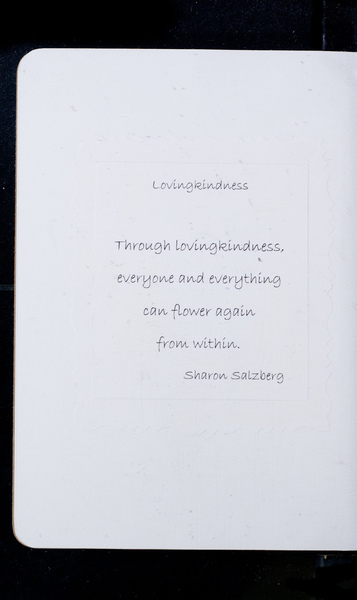 Lovingkindness
Through lovingkindness,
everyone and everything
can flower again
from within.
Sharon Salzberg